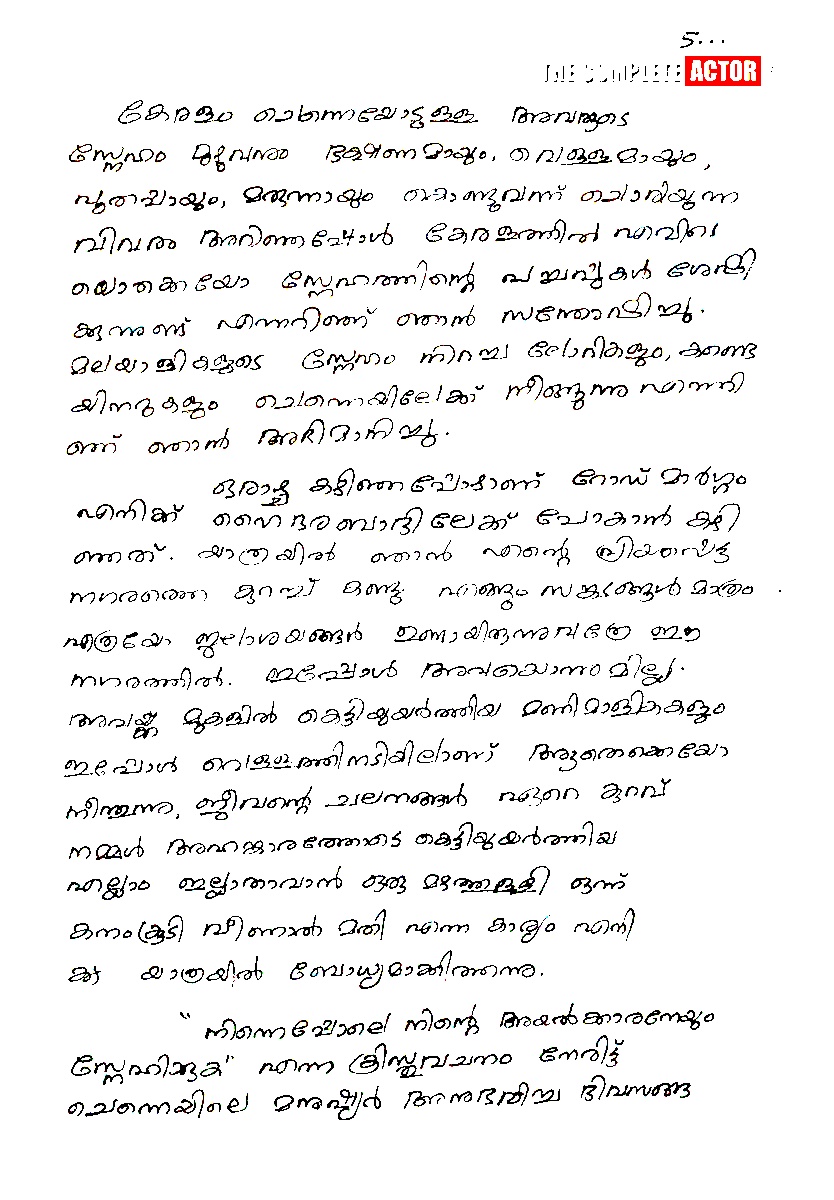 5...
THE COMPLETE ACTOR
കേരളം ചെന്നൈയോടുള്ള അവരുടെ
സ്നേഹം മുഴുവനും ഭക്ഷണമായും, വെള്ളമായും,
പുതപ്പായും, മരുന്നായും കൊണ്ടുവന്ന് ചൊരിയുന്ന
വിവരം അറിഞ്ഞപ്പോൾ കേരളത്തിൽ എവിടെ
യൊക്കെയോ സ്നേഹത്തിന്റെ പച്ചപ്പുകൾ ശേഷി
ക്കുന്നുണ്ട് എന്നറിഞ്ഞ് ഞാൻ സന്തോഷിച്ചു.
മലയാളികളുടെ സ്നേഹം നിറച്ച ലോറികളും, കണ്ടെ
യിനറുകളും ചെന്നൈയിലേക്ക് നീങ്ങുന്നു എന്നറി
ഞ്ഞ് ഞാൻ അഭിമാനിച്ചു.
ഒരാഴ്ച കഴിഞ്ഞപ്പോഴാണ് റോഡ് മാർഗ്ഗം
എനിക്ക് ഹൈദരബാദിലേക്ക് പോകാൻ കഴി
ഞ്ഞത്. യാത്രയിൽ ഞാൻ എന്റെ പ്രിയപ്പെട്ട
നഗരത്തെ കുറച്ച് കണ്ടു എങ്ങും സങ്കടങ്ങൾ മാത്രം.
എത്രയോ ജലാശയങ്ങൾ ഉണ്ടായിരുന്നുവത്രേ ഈ
നഗരത്തിൽ. ഇപ്പോൾ അവയൊന്നുമില്ല.
അവയ്ക്കു മുകളിൽ കെട്ടിയുയർത്തിയ മണിമാളികകളും
ഇപ്പോൾ വെള്ളത്തിനടിയിലാണ് ആരൊക്കെയോ
നീന്തുന്നു, ജീവന്റെ ചലനങ്ങൾ ഏറെ കുറവ്
നമ്മൾ അഹങ്കാരത്തോടെ കെട്ടിയുയർത്തിയ
എല്ലാം ഇല്ലാതാവാൻ ഒരു മഴത്തുള്ളി ഒന്ന്
കനംകൂടി വീണാൽ മതി എന്ന കാര്യം എനി
ക്കു യാത്രയിൽ ബോധ്യമാക്കിത്തന്നു.
"നിന്നെപ്പോലെ നിന്റെ അയൽക്കാരനേയും
സ്നേഹിക്കുക" എന്ന ക്രിസ്തുവചനം നേരിട്ട്
ചെന്നൈയിലെ മനുഷ്യർ അനുഭവിച്ച ദിവസങ്ങ